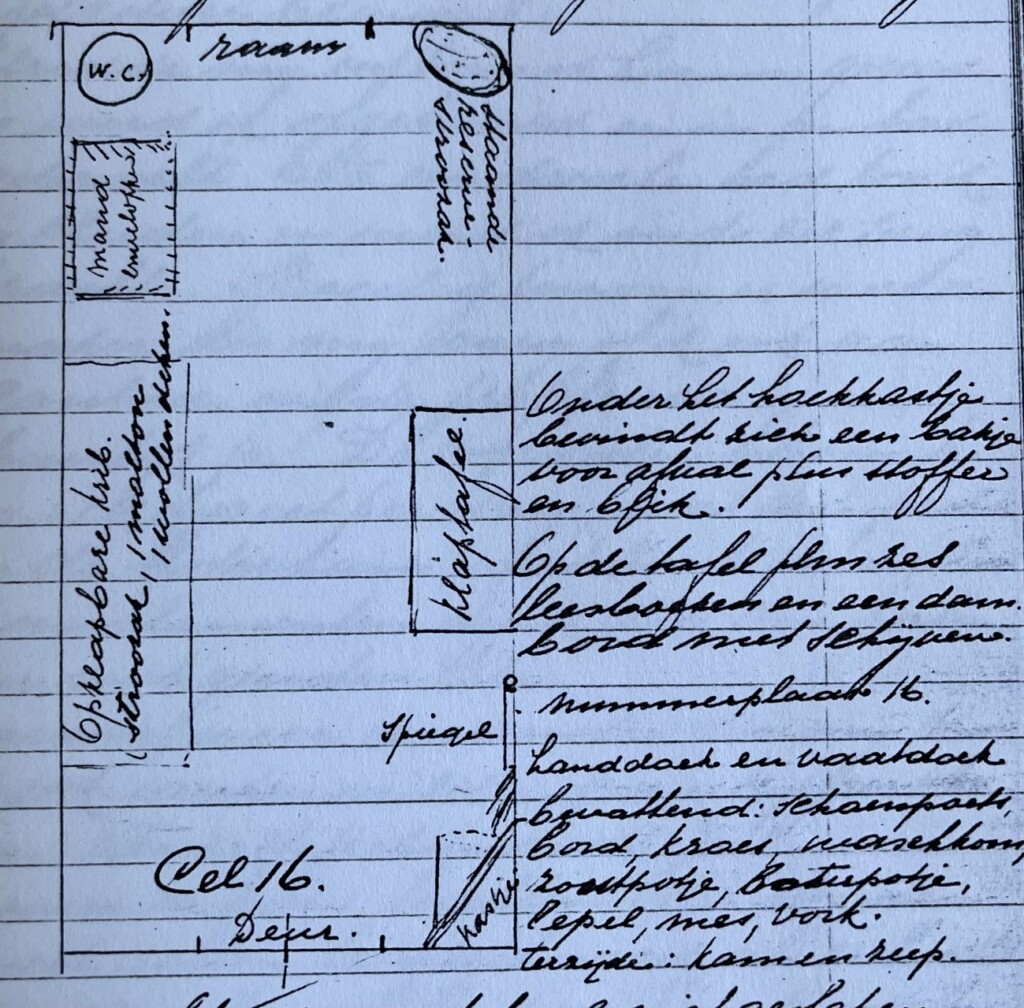 W.C.
raam
staande
reserve-
strozak.
mand
enveloppen
Opklapbare krib.
strozak, 1 molton
1 wollen deken.
klaptafel.
Onder het hoekkastje
bevindt zich een bakje
voor afval plus stoffer
en blik.
Op de tafel plm zes
leesboeken en een dam-
bord met schijven.
Spiegel
nummerplaat 16.
handdoek en vaatdoek
bevattend: schoenpoets,
bord, kroes, waschkom,
zoutpotje, Boterpotje,
lepel, mes, vork.
terzijde: kam en zeep.
kastje
Cel 16.
Deur.